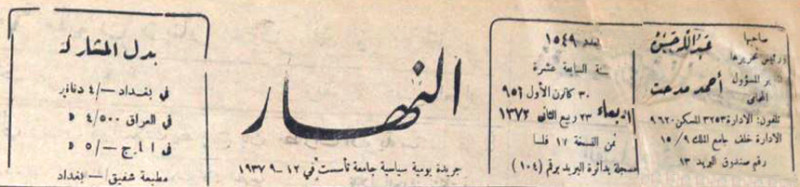 صاحبها
ورئيس تحريرها
عبدالله حسن
مدير المسؤول
المحامي
أحمد مدحت
تلفون: الادارة ٣٢٥٣ المسكن ٩٦٢٠
الادارة خلف جامع الملك ١٥/٩
رقم صندوق البريد ١٣
العدد ١٥٤٩
السابعة عشرة
٣٠ كانون الأول ٩٥٢
الاربعاء ٢٣ ربيع الثاني ١٣٧٢
ثمن النسخة ١٧ فلسا
مسجلة بدائرة البريد برقم (١٠٤)
النهار
جريدة يومية سياسية جامعة تأسست في ١٢-٩-١٩٣٧
بدل المشاركة
في بغداد —/٤ دنانير
في العراق ٤/٥٠٠ د
في الخارج —/٥ د
مطبعة شفيق/—بغداد